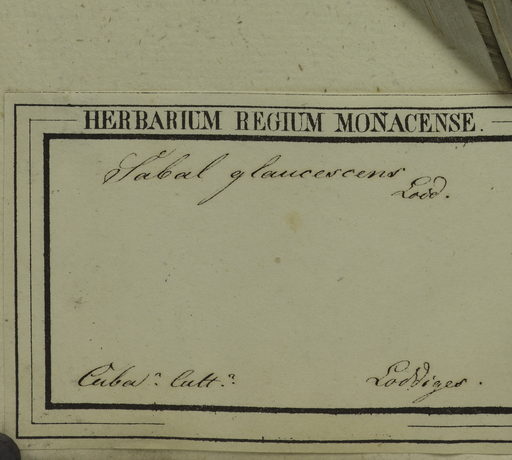 HERBARIUM REGIUM MONACENSE.
Sabal glaucescens
Lodd.
Cuba. Cult. Loddiges.